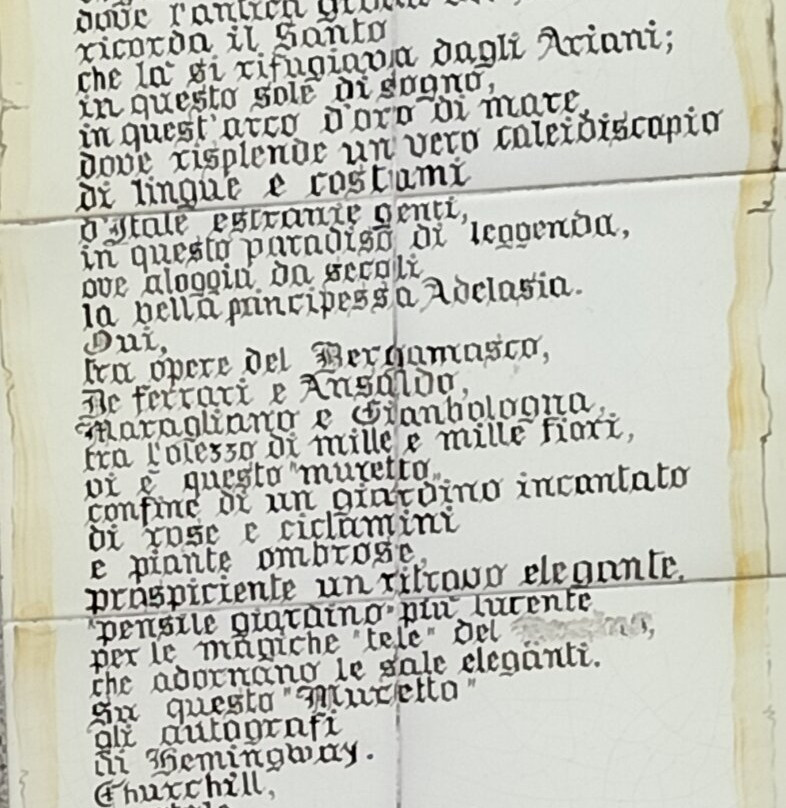 dove l'antica
ricorda il Santo
che la si rifugiava dagli Ariani;
in questo sole di sogno,
in quest'arco d'oro di mare,
dove risplende un vero caleidiscopio
di lingue e costumi
d'Itale estranie genti,
in questo paradiso di leggenda,
ove aloggia da secoli
la bella principessa Adelasia.
Qui,
tra opere del Bergamasco,
De ferrari e Ansaldo,
Maragliano e Gianbologna,
tra l'olezzo di mille e mille fiori,
vi è questo "muretto"
confine di un giardino incantato
di rose e ciclamini
e piante ombrose,
prospiciente un ritrovo elegante.
"pensile giardino" più lucente
per le magiche "tele" del
che adornano le sale eleganti.
Su questo "Muretto"
gli autografi
di Hemingway.
Churchill,